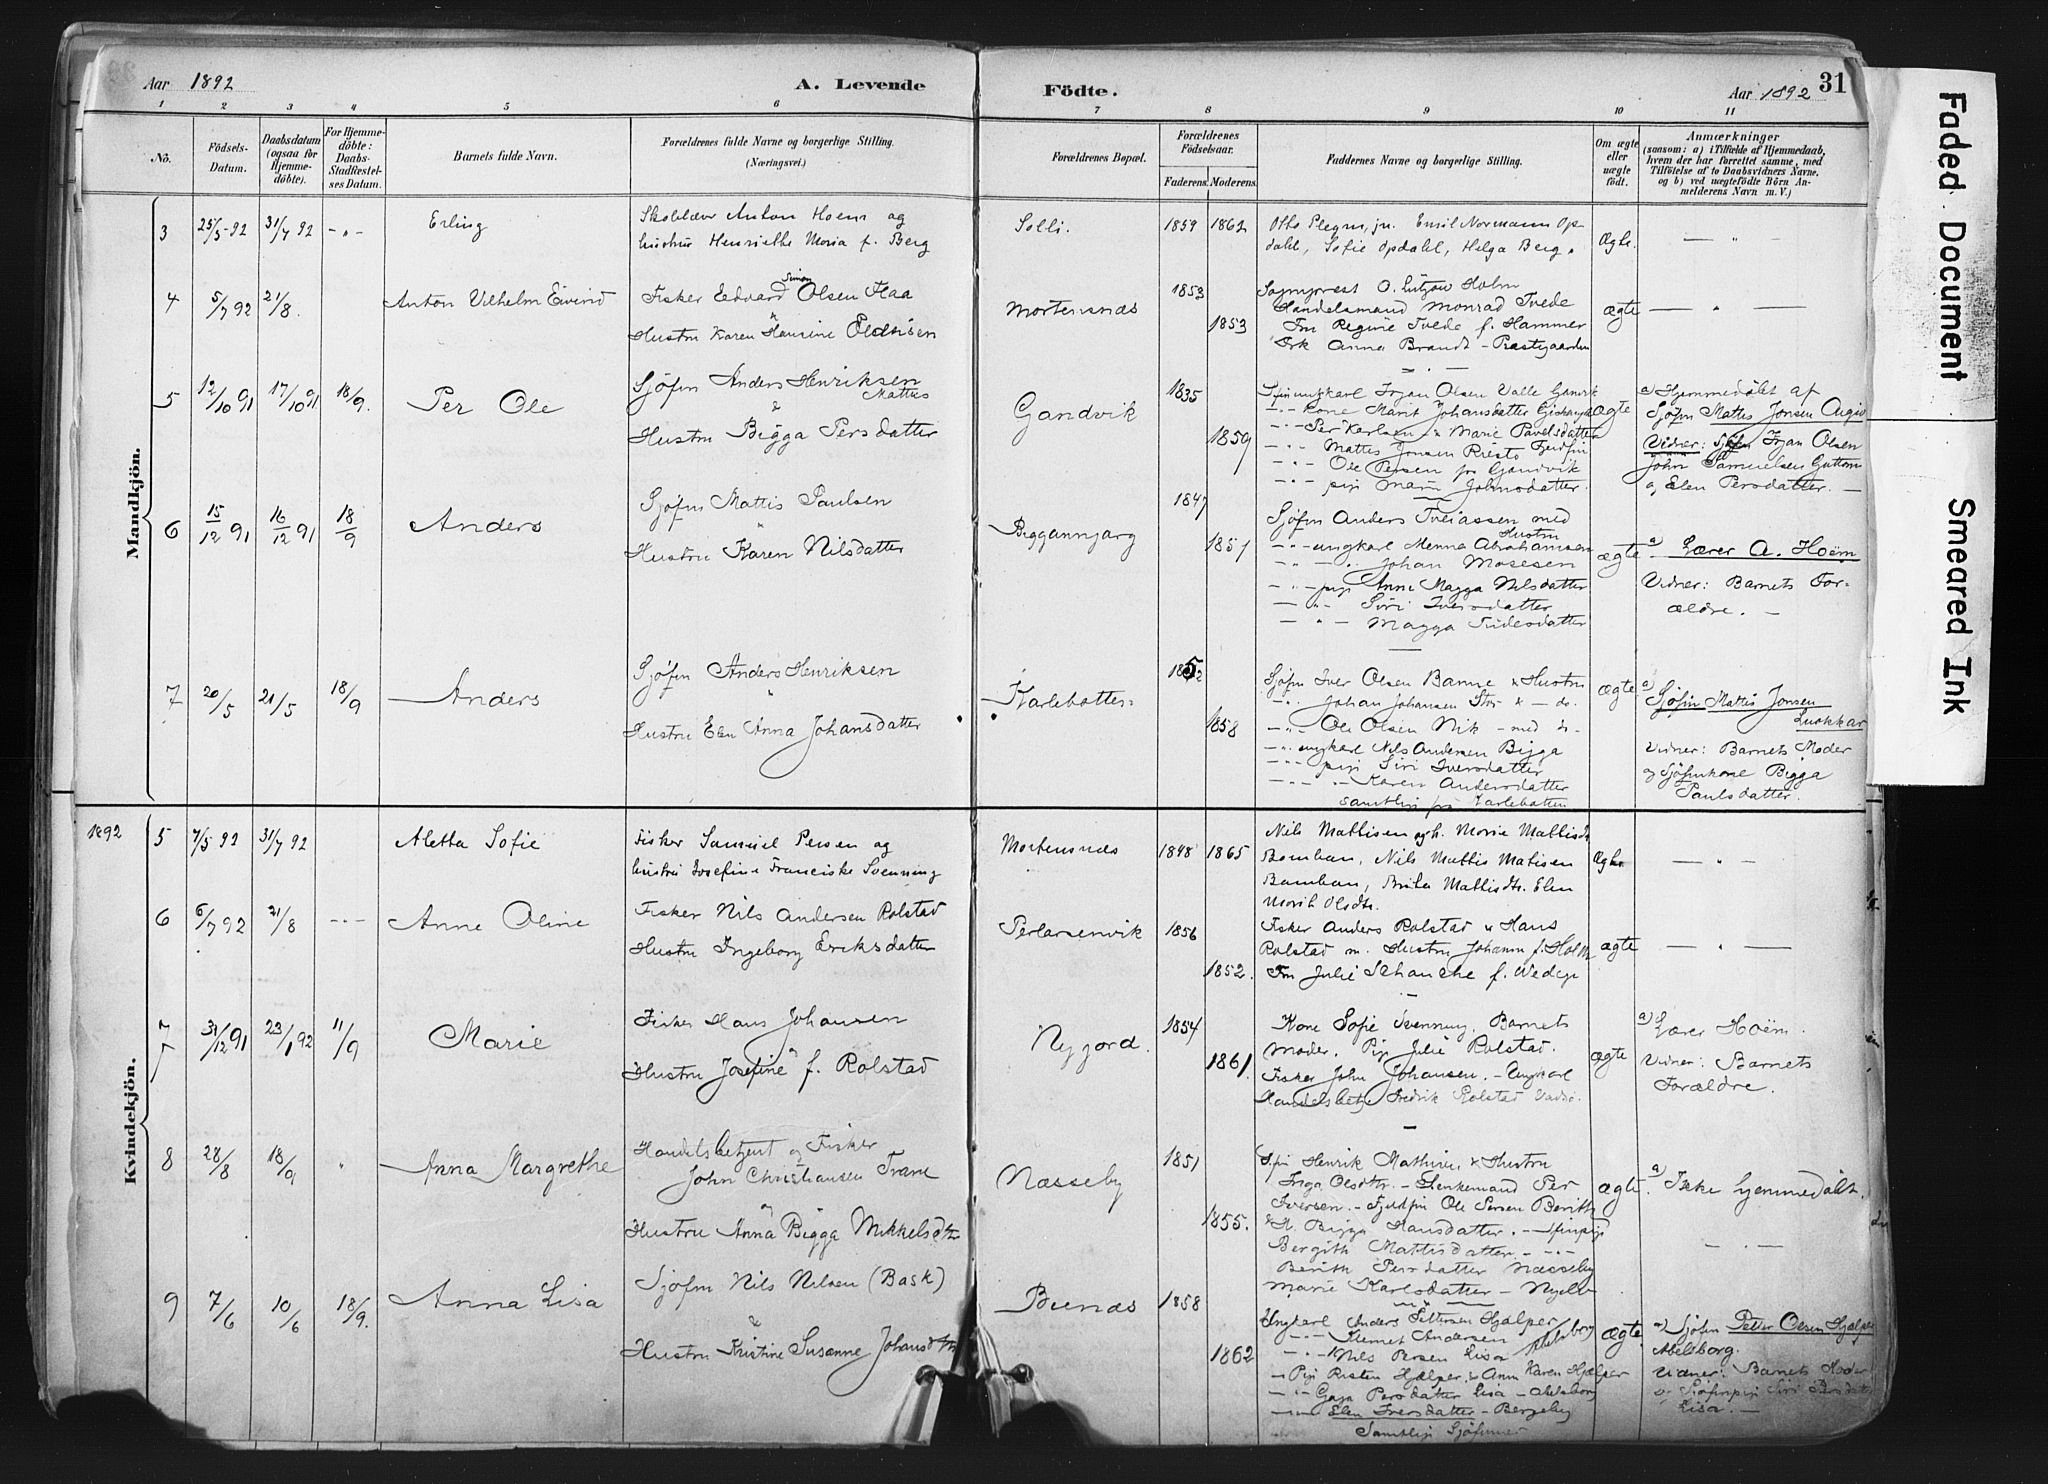 Aar 1892
A. Levende
Födte.
Aar 1892
31
1 2 3 4 5 6 7 8 9 10 11
No.
Födsels-
Datum.
Daabsdatum
(ogsaa for
Hjemme-
döbte).
For Hjemme-
döbte:
Daabs-
Stadfæstel-
ses Datum.
Barnets fulde Navn.
Forældrenes fulde Navne og borgerlige Stilling.
(Næringsvei.)
Forældrenes Bopæl.
Forældrenes
Födselsaar.
Faderens. Moderens.
Faddernes Navne og borgerlige Stilling.
Om ægte
eller
uægte
födt.
Anmærkninger
(saasom: a) i Tilfælde af Hjemmedaab,
hvem der har forrettet samme, med
Tilföielse af to Daabsvidners Navne,
og b) ved uægtefödte Börn An-
melderens Navn m. V.)
Mandkjön.
3 25/5-92 31/7 92 -"- Erling
Anton Hoem og
hustru Henriethe Maria f. Berg
Solli.
1859 1862
Emil Normann Op-
dahl, Sofie Opdahl, Helga Berg.
Ægte.
— " —
4 5/7 92 21/8. Anton Vilhelm Eivind
Simon
Fisker Edvard Olsen Flaa
&
Hustru Karen Hansine
Mortensnæs
1853
1853
Sogneprest O. Lützow Holm
Handelsmand Monrad Tvede
Fru Regine Tvede f. Hammer
Frk Anna Brandt - Præstgaarden
ægte
— " —
5 12/10 91 17/10 91 18/9. Per Ole
Sjöfin Anders Henriksen
Mattus
&
Hustru Bigga Persdatter
Gandvik
1835
1859
Olsen Valle Gandvik
Kone Marit Johansdatter
Per Karlsen & Marie Pavelsdatter
Mattis Jonsen Risto Fjeldfin
Ole Persen fra Gandvik
pige Marie Johnsdatter.
ægte
a) Hjemmedöbt af
Sjöfin Mattis Jonsen
Vidner: Sjöfin Olsen
John Samuelsen Guttorm
og Elen Persdatter. —
6 15/12 91 16/12 91 18/9 Anders
Sjöfin Mattis Paulsen
"
Hustru Karen Nilsdatter
Biggannjarg
1847
1851
Sjöfin Anders med
Hustru
-"- ungkarl Menna Abrahamsen
-"- Johan Mosesen
-"- pige Anne Magga Nilsdatter
-"- Siri Iversdatter
-"- Magga
ægte
a) Lærer A. Hoëm
Vidner: Barnets For-
ældre. —
7 20/5 21/5 18/9 Anders
Sjöfin Anders Henriksen
"
Hustru Elen Anna Johansdatter
Karlebotten
1852
1858
Sjöfin Iver Olsen Banne & Hustru
Johan Johansen & do.
-"- Ole Olsen Nik - med
-"- ungkarl Nils Andersen Bigga
-"- pige Siri Iversdatter
-"- Karen Andersdatter
samtlige fra Karlebotten
ægte
a) Sjöfin Mattis Jonsen
Luokkar
Vidner: Barnets Moder
og Sjöfinkone Bigga
Paulsdatter.
1892
Kvindekjön.
5 7/5 92 31/7 92 Aletta Sofie
Fisker Samuel Persen og
hustru Josefine Franciske Svenning
Mortensnæs
1848 1865
Nils Mattisen og h. Marie Mattisdtr.
Bomban, Nils Mattis Matisen
Bamban, Brita Mattisdtr. Elen
Marih Olsdtr.
Ægte.
— " —
6 6/7 92 21/8 --- Anne Oline
Fisker Nils Andersen Rolstad
Hustru Ingeborg Eriksdatter
Perlarsenvik
1856
1852.
Fisker Anders Rolstad & Hans
Rolstad m. Hustru Johanne f. Holm
Fru Julie Schanche f. Wedege
ægte
— " —
7 31/12 91 23/1 92 11/9 Marie
Fisker Hans Johansen
"
Hustru Josefine f. Rolstad
Nygjord.
1854
1861.
Kone Sofie Svenning, Barnets
Moder. Pige Julie Rolstad.
Fisker John Johansen. - Ungkarl
Handelsbetj. Fredrik Rolstad Vadsö.
ægte
a) Lærer Hoëm.
Vidner: Barnets
Forældre.
8 28/8 18/9 " Anna Margrethe
Handelsbetjent og Fisker
John Christiansen Trane
og
Hustru Anna Bigga Mikkelsdtr
Næsseby
1851
1855.
Henrik Mathisen & Hustru
Inga Olsdtr. - Lænkemand Per
Iversen. - Fjeldfin Ole Persen Berith
& H. Bigga Hansdatter. -
Bergith Mattisdatter. -"-
Berith Persdatter Næsseby
Marie Karlsdatter -
ægte.
a) Ikke hjemmedöbt.
— " —
9 7/6 10/6 18/9. Anna Lisa
Sjöfin Nils Nilsen (Bask)
&
Hustru Kristine Susanne Johansdtr
Bunæs
1858
1862
Ungkarl Anders Pettersen Hjelper
-"- Klemet Andersen Abelsborg
-"- Nils Persen Lisa
- Pige Risten Hjelper. & Ann Karen Hjelper
-"- Persdatter Lisa - Abelsborg
-"- Elen Iversdatter - Bergeby
Samtlige Sjöfinner
ægte
a) Sjöfin Petter Olsen Hjelper
Abelsborg.
Vidner: Barnets Moder
og Siri Persdatter
Lisa. —
Faded Document
Smeared Ink